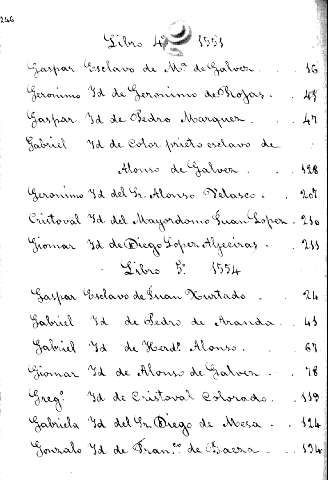 246
Libro 4º 1551
Gaspar Esclavo de Mª de Galvez . . . 16
Geronimo Id de Geronimo de Rojas . . 45
Gaspar Id de Pedro Marquez . . 47
Gabriel Id de Color prieto esclavo de
Alonso de Galvez . . 128
Geronimo Id del Sr. Alonso Velasco . . 207
Cristoval Id del Mayordomo Juan Lopez . 210
Giomar Id de Diego Lopez Aljeciras . . 211
Libro 5º 1554
Gaspar Esclavo de Juan Xurtado . . 24
Gabriel Id de Pedro de Aranda . . 45
Gabriel Id de Herdº Alonso . . 67
Giomar Id de Alonso de Galvez . . 78
Gregº Id de Cristoval Colorado . . 119
Gabriela Id del Sr. Diego de Mesa . . 124
Gonzalo Id de Franco de Baeza . . 134